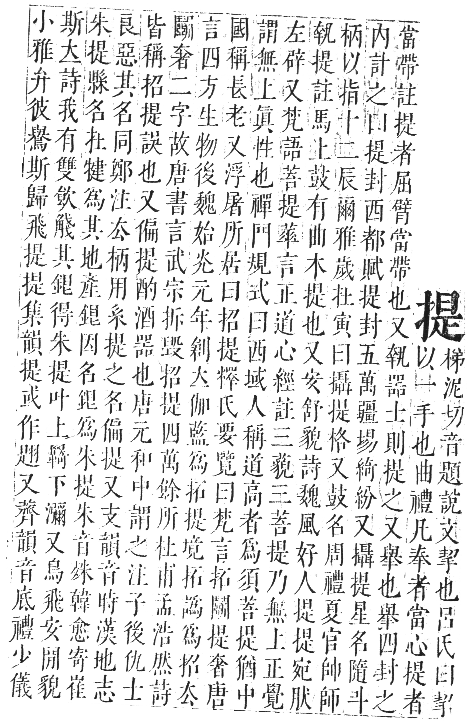 提
梯泥切音題說文挈也呂氏曰挈
以一手也曲禮凡奉者當心提者
當帶註提者屈臂當帶也又執器士則提之又舉也舉四封之
內計之曰提封西都賦提封五萬疆埸綺紛又攝提星名隨斗
柄以指十二辰爾雅歲在寅曰攝提格又鼓名周禮夏官帥師
執提註馬上鼓有曲木提也又安舒貌詩魏風好人提提宛肰
左辟又梵語菩提華言正道心經註三藐三菩提乃無上正覺
謂無上眞性也禪門規式曰西域人稱道高者爲須菩提猶中
國稱長老又浮屠所居曰招提釋氏要覽曰梵言拓鬭提奢唐
言四方生物後魏始光元年創大伽藍爲拓提境拓譌爲招厺
鬭奢二字故唐書言武宗拆毀招提四萬餘所杜甫孟浩肰詩
皆稱招提誤也又偏提酌酒器也唐元和中謂之注子後仇士
良惡其名同鄭注厺柄用系提之名偏提又支韻音時漢地志
朱提縣名在犍爲其地產銀因名銀爲朱提朱音殊韓愈寄崔
斯立詩我有雙飮觥其銀得朱提叶上鞿下瀰又鳥飛安閒貌
小雅弁彼鸒斯歸飛提提集韻提或作趧又薺韻音底禮少儀